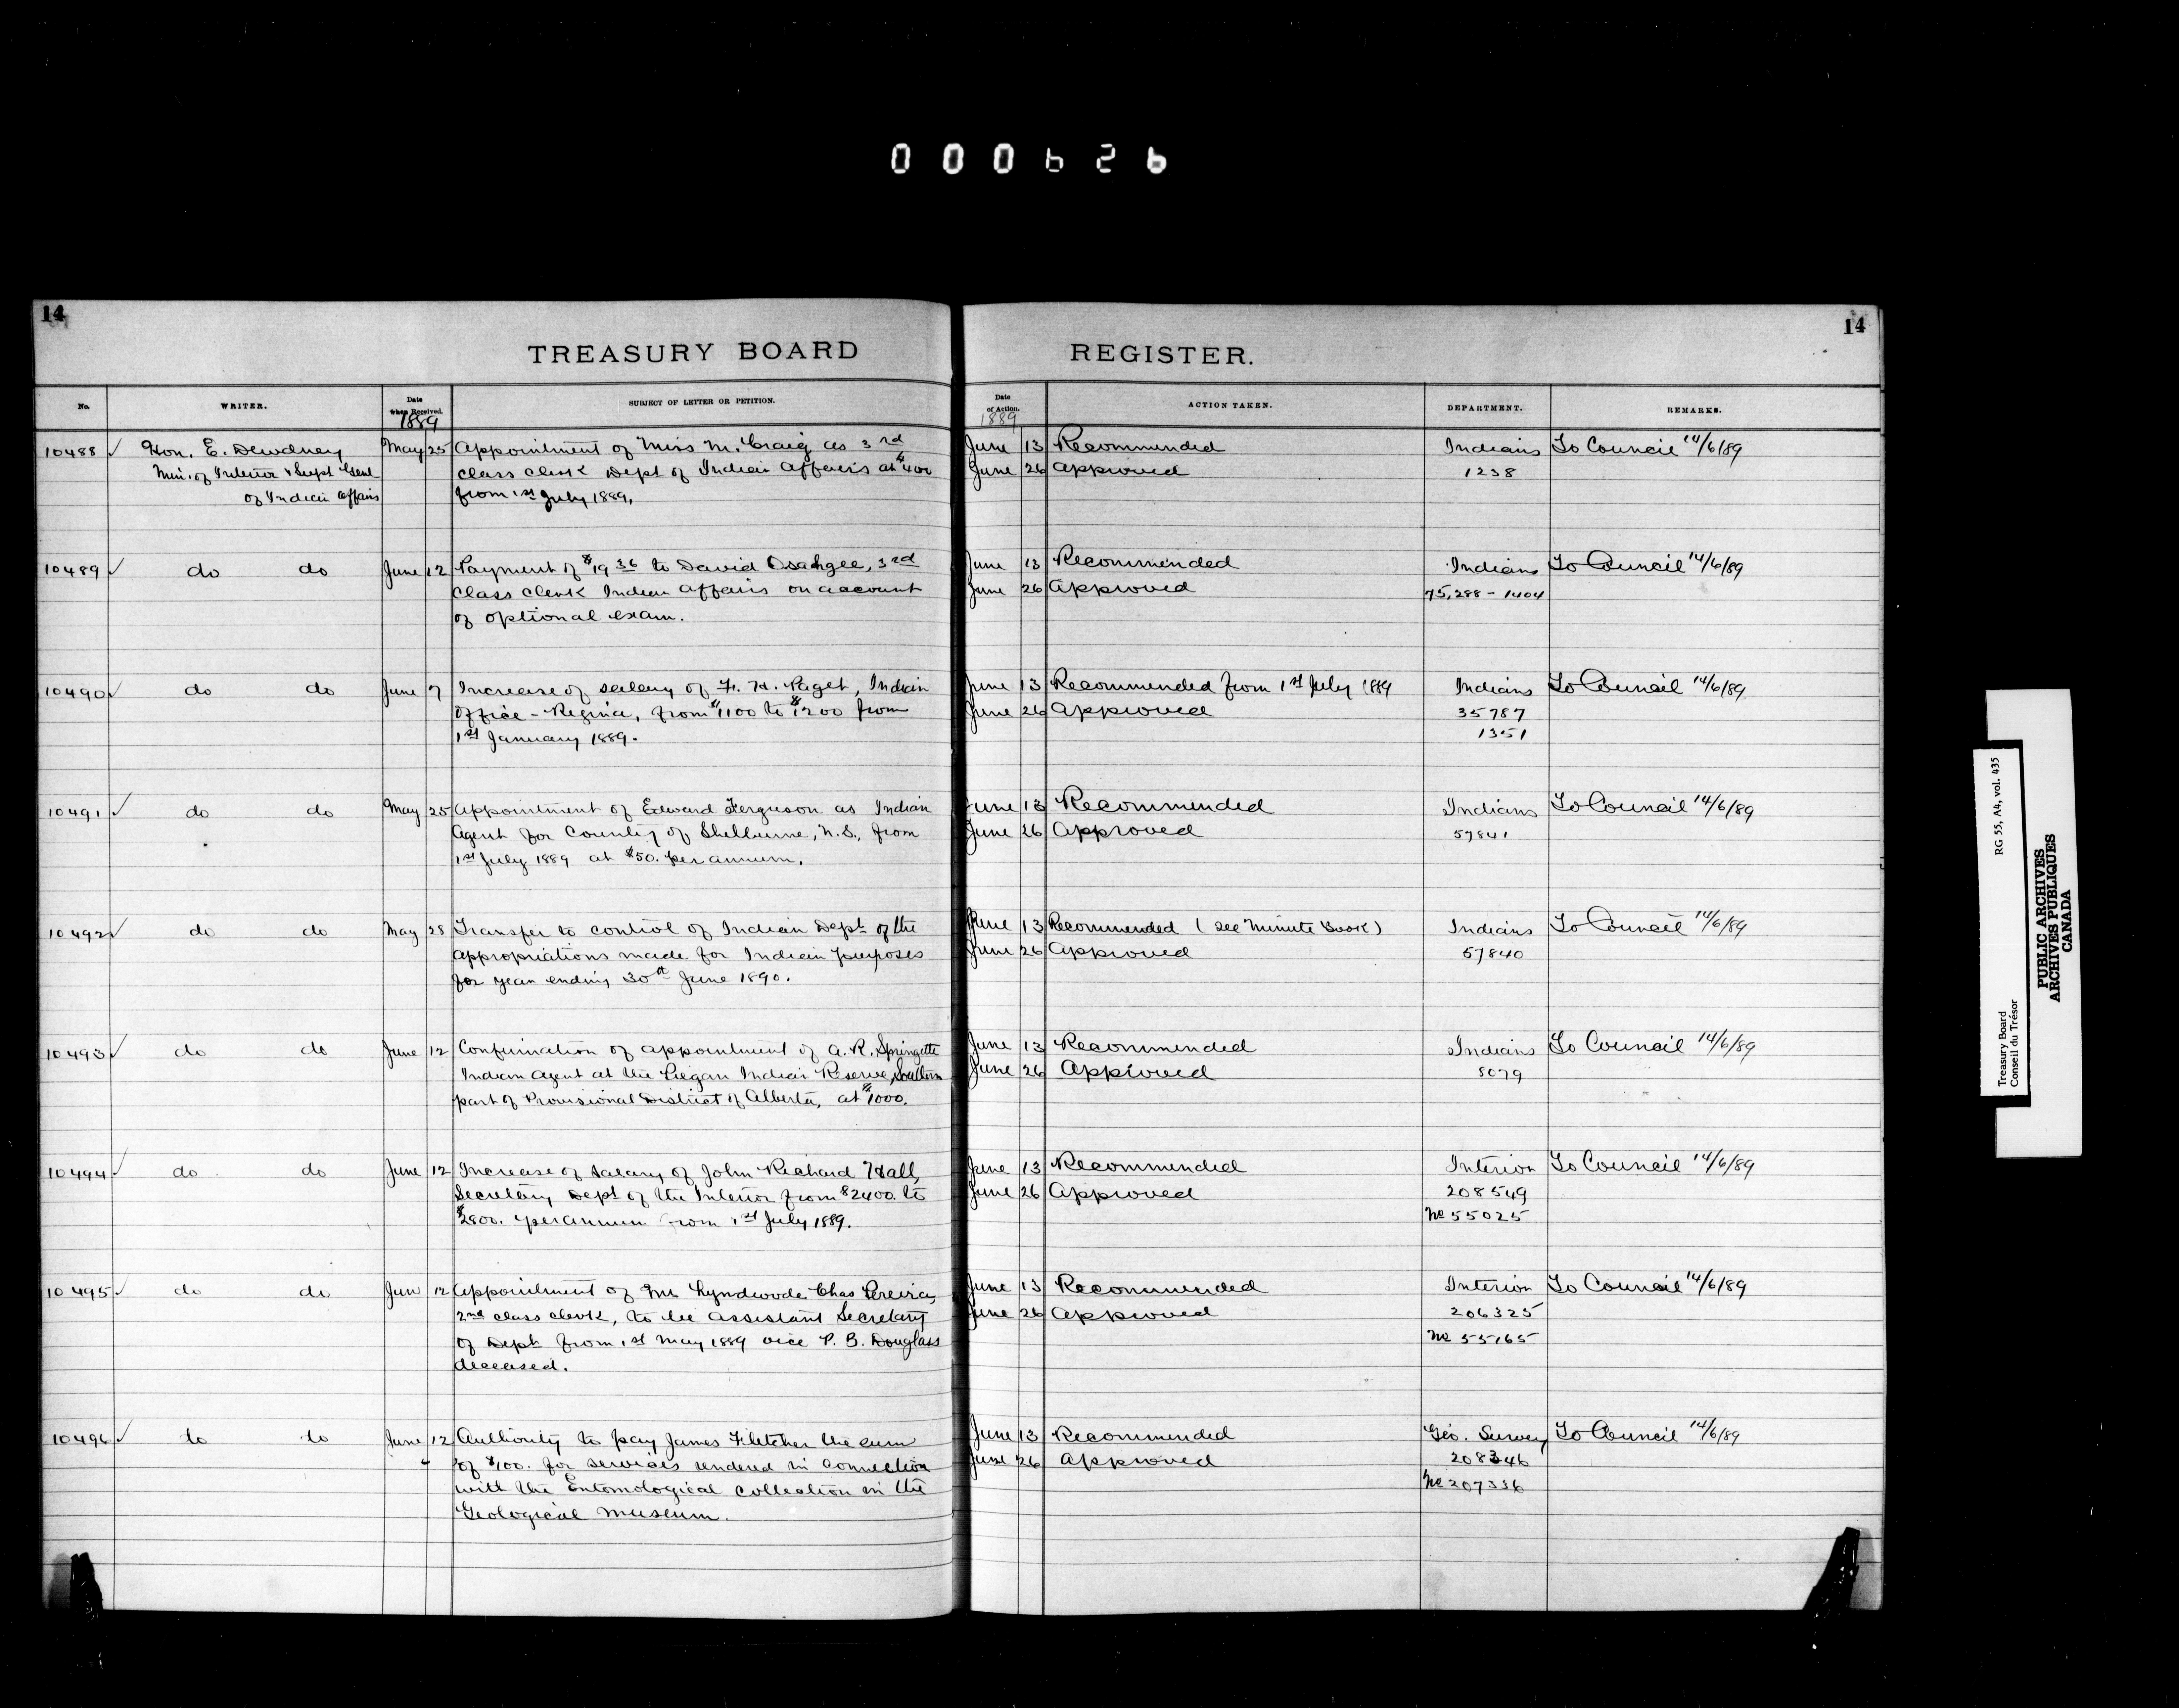 000626
14
14
TREASURY BOARD REGISTER.
No. WRITER. Date when Received. SUBJECT OF LETTER OR PETITION. Date of Action. ACTION TAKEN. DEPARTMENT. REMARKS.
1889 1889
10488 ✓ Hon. E. Dewdney May 25 Appointment of Miss M. Craig as 3rd June 13 Recommended Indians To Council 14/6/89
Min. of Interior & Supt Genl class clerk Dept of Indian Affairs at $400 June 26 Approved 1238
of Indian Affairs from 1st July 1889.
10489 ✓ do do June 12 Payment of $19 36 to David Osahgee, 3rd June 13 Recommended Indians To Council 14/6/89
class clerk Indian Affairs on account June 26 Approved 75,288 - 1404
of optional exam.
10490 ✓ do do June 7 Increase of salary of F. H. Paget, Indian June 13 Recommended from 1st July 1889 Indians To Council 14/6/89
Office - Regina, from $1100 to $1200 from June 26 Approved 35787
1st January 1889. 1351
10491 ✓ do do May 25 Appointment of Edward Ferguson as Indian June 13 Recommended Indians To Council 14/6/89
Agent for County of Shelburne, N.S., from June 26 Approved 57841
1st July 1889 at $50. per annum.
10492 ✓ do do May 28 Transfer to control of Indian Dept of the June 13 Recommended (see Minute Book) Indians To Council 14/6/89
appropriations made for Indian purposes June 26 Approved 57840
for year ending 30th June 1890.
10493 ✓ do do June 12 Confirmation of appointment of A. R. Springette June 13 Recommended Indians To Council 14/6/89
Indian Agent at the Piegan Indian Reserve, Southern June 26 Approved 5079
part of Provisional District of Alberta, at $1000.
10494 ✓ do do June 12 Increase of salary of John Richard Hall, June 13 Recommended Interior To Council 14/6/89
Secretary Dept of the Interior from $2400. to June 26 Approved 208549
$2800. per annum from 1st July 1889. No 55025
10495 ✓ do do Jun 12 Appointment of Mr Lyndwode Chas Pereira, June 13 Recommended Interior To Council 14/6/89
2nd class clerk, to be Assistant Secretary June 26 Approved 206325
of Dept from 1st May 1889 vice P. B. Douglass No 55165
deceased.
10496 ✓ do do June 12 Authority to pay James Fletcher the sum June 13 Recommended Geo. Survey To Council 14/6/89
of $100. for services rendered in connection June 26 Approved 208346
with the Entomological collection in the No 207336
Geological Museum.
Treasury Board RG 55, A4, vol. 435
Conseil du Trésor
PUBLIC ARCHIVES
ARCHIVES PUBLIQUES
CANADA